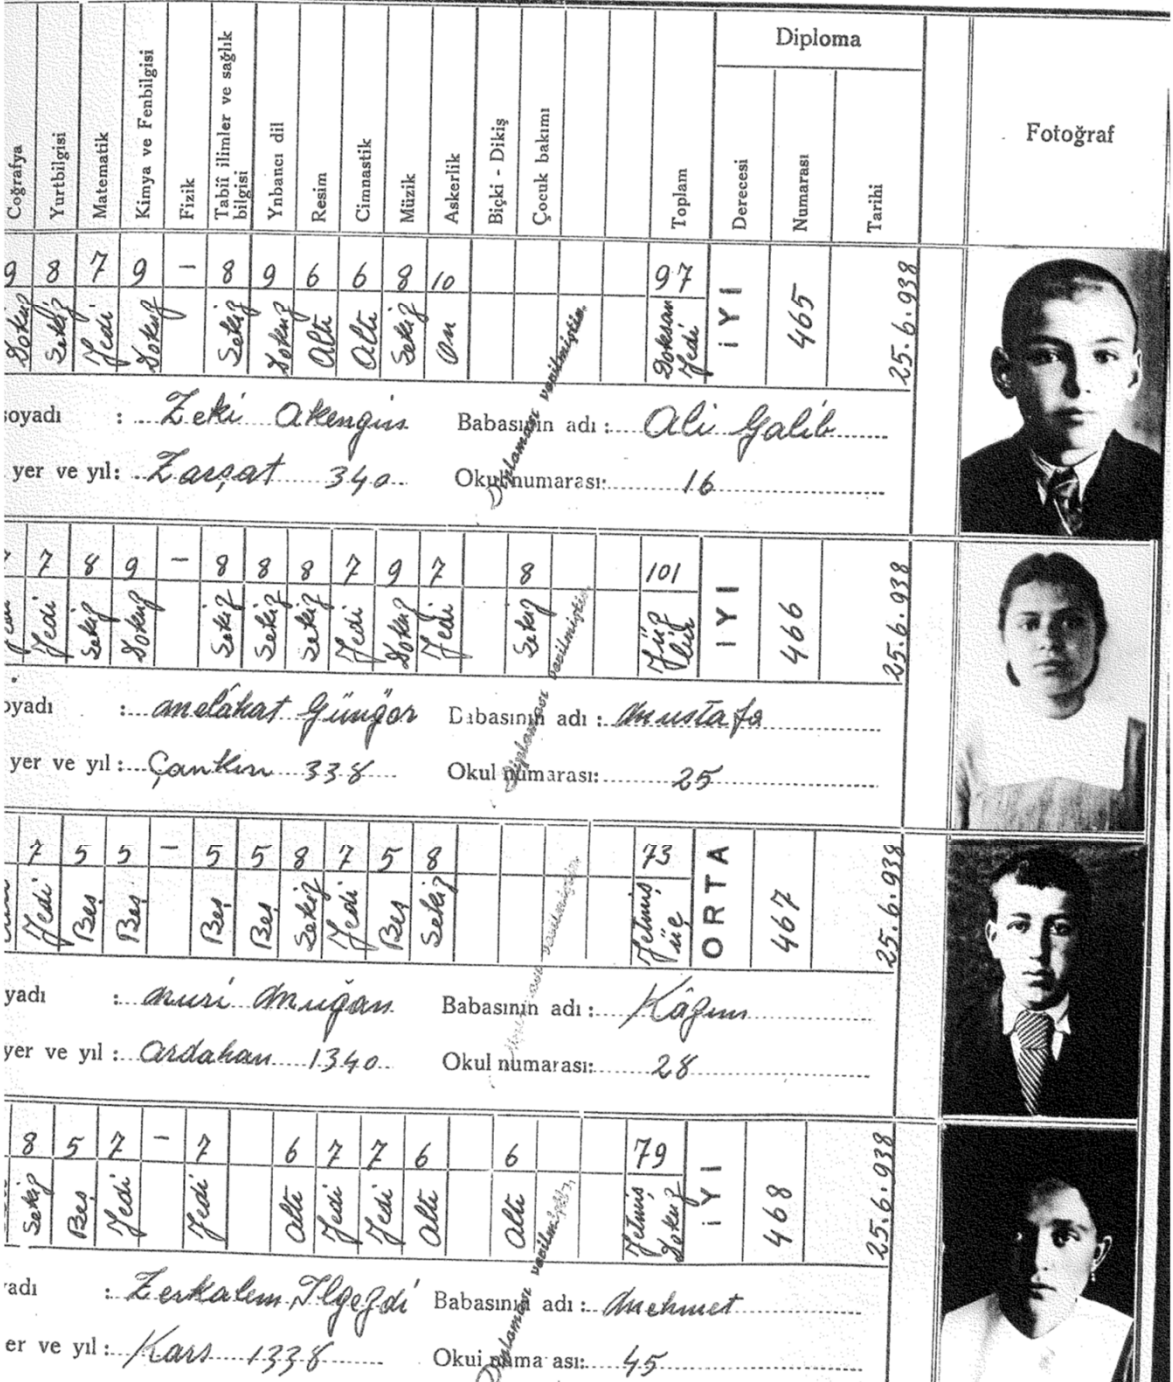 Diploma
Coğrafya
Yurtbilgisi
Matematik
Kimya ve Fenbilgisi
Fizik
Tabiî ilimler ve sağlık bilgisi
Ynbancı dil
Resim
Cimnastik
Müzik
Askerlik
Biçki - Dikiş
Çocuk bakımı
Toplam
Derecesi
Numarası
Tarihi
Fotoğraf
9 8 7 9 — 8 9 6 6 8 10 97
Dokuz Sekiz Yedi Dokuz Sekiz Dokuz Altı Altı Sekiz On Doksan Yedi İYİ 465 25.6.938
soyadı : Zeki Akengin Babasının adı : Ali Galib
yer ve yıl: Zarşat 340 Okul numarası: 16
Diploması verilmiştir.
7 8 9 — 8 8 8 7 9 7 8 101
Yedi Sekiz Dokuz Sekiz Sekiz Sekiz Yedi Dokuz Yedi Sekiz Yüz bir IYI 466 25.6.938
oyadı : Melâhat Güngör Babasının adı : Mustafa
yer ve yıl: Çankırı 338 Okul numarası: 25
Diploması verilmiştir.
7 5 5 — 5 5 8 7 5 8 73
Yedi Beş Beş Beş Beş Sekiz Yedi Beş Sekiz Yetmiş üç ORTA 467 25.6.938
yadı : Nuri Muğan Babasının adı : Kâzım
yer ve yıl: Ardahan 1340 Okul numarası: 28
8 5 7 — 7 6 7 7 6 6 79
Sekiz Beş Yedi Yedi Altı Yedi Yedi Altı Altı Yetmiş Dokuz İYİ 468 25.6.938
adı : Zerkalem Ilgezdi Babasının adı : Mehmet
er ve yıl: Kars 1338 Okul numarası: 45
Diploması verilmiştir.